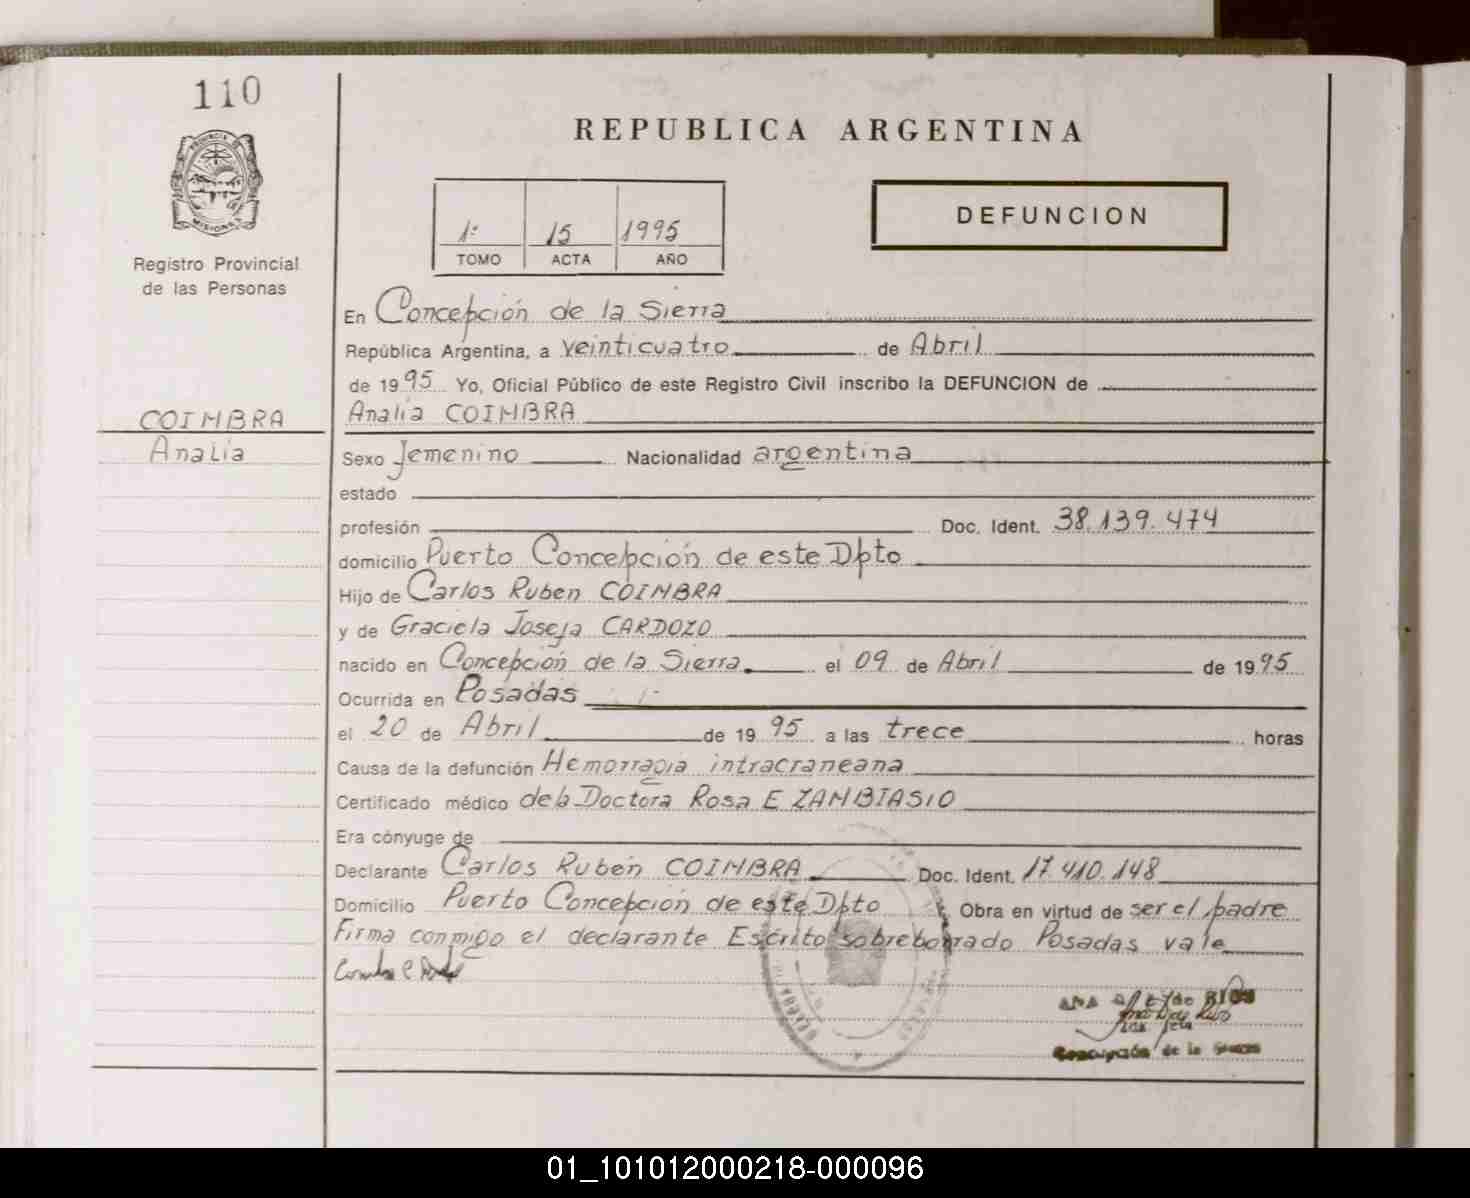 110
REPUBLICA ARGENTINA
PROVINCIA DE
MISIONES
Registro Provincial
de las Personas
1º 15 1995
TOMO ACTA AÑO
DEFUNCION
En Concepción de la Sierra
República Argentina, a veinticuatro de Abril
de 1995 Yo, Oficial Público de este Registro Civil inscribo la DEFUNCION de
COIMBRA
Analia
Analia COIMBRA
Sexo femenino Nacionalidad argentina
estado
profesión Doc. Ident. 38.139.474
domicilio Puerto Concepción de este Dpto
Hijo de Carlos Ruben COIMBRA
y de Graciela Josefa CARDOZO
nacido en Concepción de la Sierra el 09 de Abril de 1995
Ocurrida en Posadas
el 20 de Abril de 1995 a las trece horas
Causa de la defunción Hemorragia intracraneana
Certificado médico de la Doctora Rosa E ZAMBIASIO
Era cónyuge de
Declarante Carlos Rubén COIMBRA Doc. Ident. 17.410.148
Domicilio Puerto Concepción de este Dpto Obra en virtud de ser el padre
Firma conmigo el declarante Escrito sobreborrado Posadas vale
ANA de RIOS
Concepción de la Sierra
01_101012000218-000096